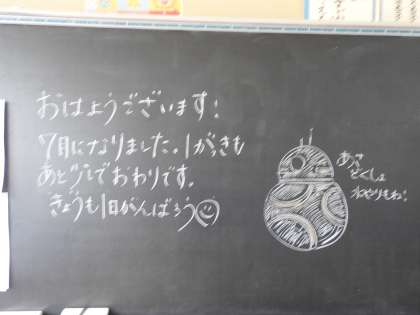 おはようございます!
7月になりました。1がっきも
あと少しでおわりです。
きょうも1日がんばろう
あさ
どくしょ
水やりもね!